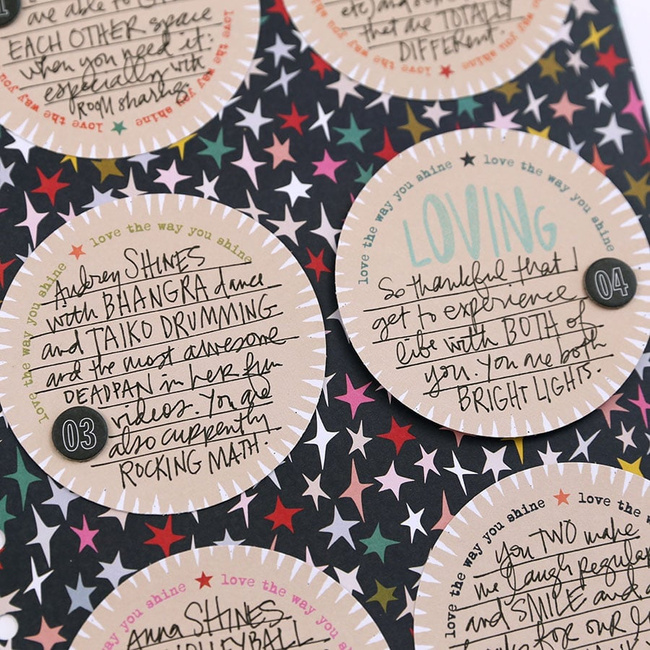 are able to GIVE
EACH OTHER space
when you need it.
especially with
ROOM sharing
love the way you shine
etc) and
that are TOTALLY
DIFFERENT.
love the way you shine
love the way you shine ★ love the way you shine
Audrey SHINES
with BHANGRA dance
and TAIKO DRUMMING
and the most awesome
DEADPAN in her fun
videos. You are
also currently
ROCKING MATH.
03
love the way you shine ★ love the way you shine
LOVING
So thankful that I
get to experience
life with BOTH of
you. You are both
BRIGHT LIGHTS.
04
you shine ★ love the way you shine
Anna SHINES
VOLLEYBALL
love the way you shine ★ love the
You TWO make
me laugh regular
and SMILE and